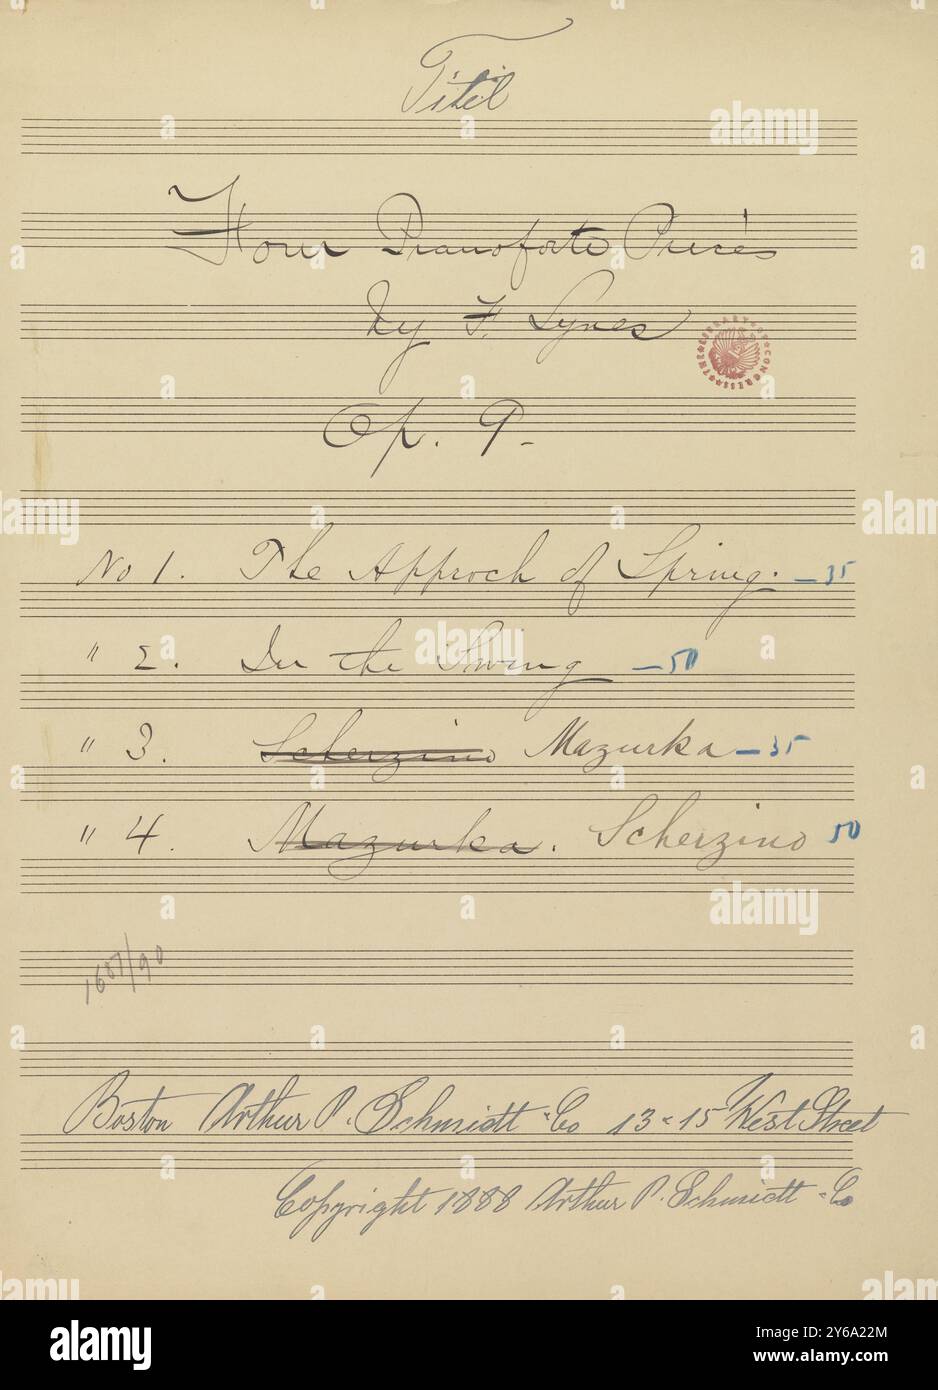 Titel
Four Pianoforte Pieces
by F. Lynes
Op. 9-
No 1. The Approch of Spring. - 35
" 2. In the Swing - 50
" 3. Scherzino Mazurka - 35
" 4. Mazurka. Scherzino 50
1607/90
Boston Arthur P. Schmidt & Co 13 & 15 West Street
Copyright 1888 Arthur P. Schmidt & Co
THE LIBRARY OF CONGRESS
alamy
Image ID: 2Y6A22M
www.alamy.com